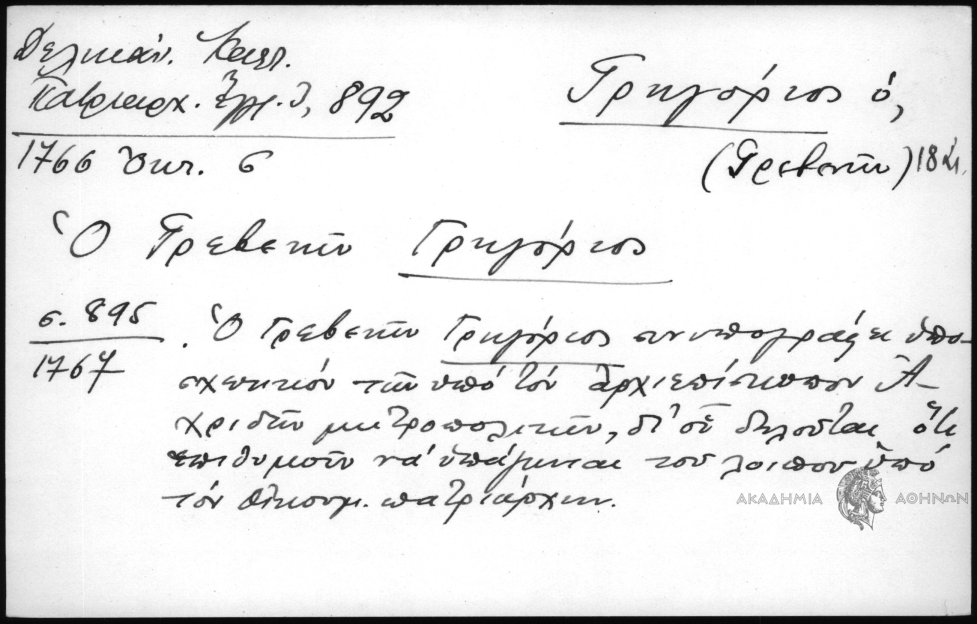 Δελικάν. Καλλ.
Πατριαρχ. Ἔγγρ. Γ, 892
Γρηγόριος ὁ,
1766 Ὀκτ. 6
(Γρεβενῶν) 18 αἰ.
Ὁ Γρεβενῶν Γρηγόριος
σ. 895
1767
Ὁ Γρεβενῶν Γρηγόριος συνυπογράφει ὑπο-
σχετικόν τῶν ὑπό τόν ἀρχιεπίσκοπον Ἀ-
χριδῶν μητροπολιτῶν, δι' οὗ δηλοῦται ὅτι
ἐπιθυμοῦν νά ὑπάγωνται τοῦ λοιποῦ ὑπό
τόν Οἰκουμ. πατριάρχην.
ΑΚΑΔΗΜΙΑ ΑΘΗΝΩΝ